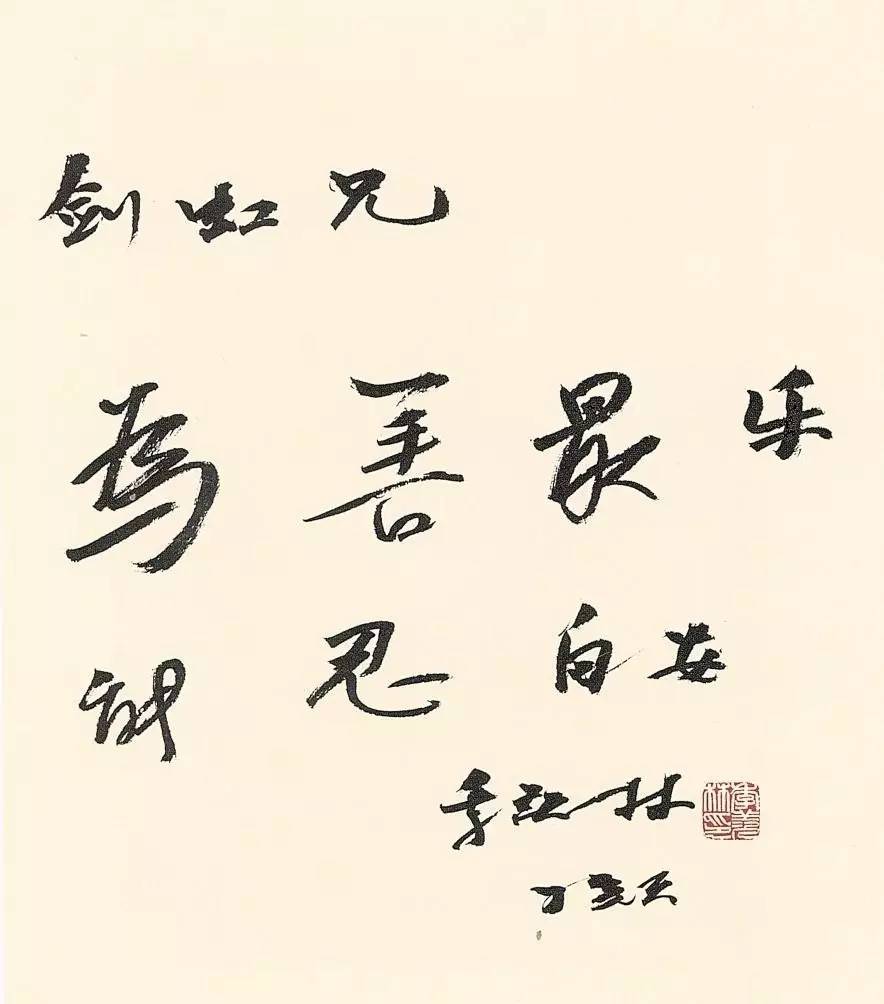 剑虹兄
為善最乐
能忍自安
季羡林 季羡林印
丁亥